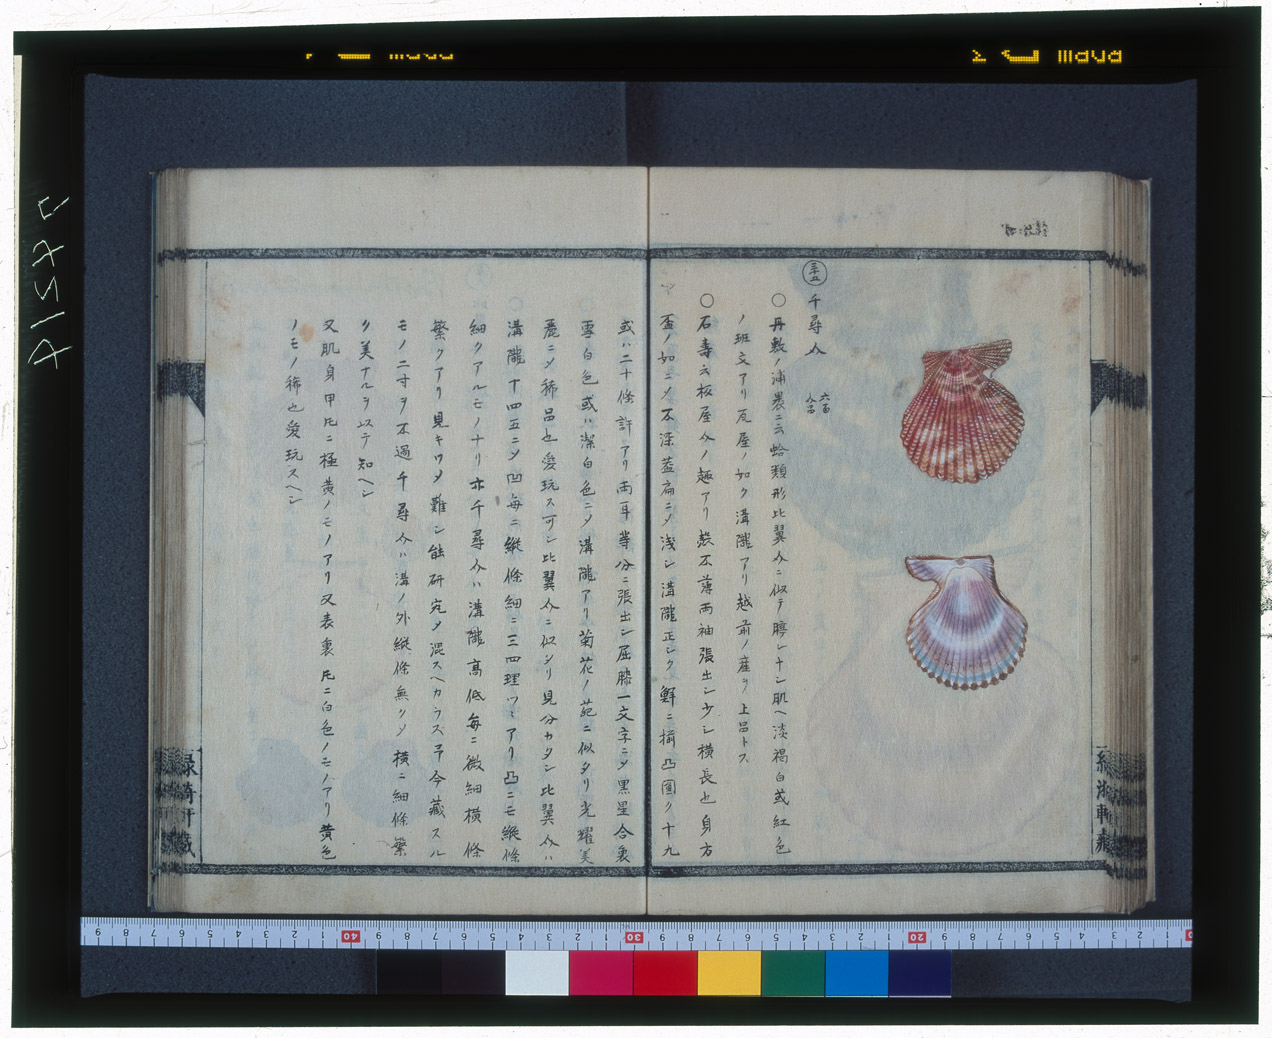 三十五
千尋介
六百
介品
○丹敷ノ浦裏ニ云蛤類形比翼介ニ似テ脖レナシ肌ヘ淡褐白或紅色
ノ班文アリ瓦屋ノ如ク溝隴アリ越前ノ産ヲ上品トス
○石壽云板屋介ノ趣アリ殻不薄両袖張出シ少シ横長也身方
盃ノ如ニメ不深蓋扁ニメ浅シ溝隴正シク鮮ニ揃凸圓ク十九
或ハ二十條許アリ両耳等分ニ張出シ屈膝一文字ニメ黒星合裏
雪白色或ハ潔白色ニメ溝隴アリ菊花ノ苑ニ似タリ光耀美
麗ニメ稀品也愛玩ス可シ比翼介ニ似タリ見分カタシ比翼介ハ
溝隴十四五ニメ凹毎ニ縦條細ニ三四理ツヽアリ凸ニモ縦條
細クアルモノナリ亦千尋介ハ溝隴高低毎ニ微細横條
繁クアリ見キワメ難シ能研究メ混スヘカラス予今蔵スル
モノ二寸ヲ不過千尋介ハ溝ノ外縦條無クメ横ニ細條繁
ク美ナルヲ以テ知ヘシ
又肌身甲比ニ極黄ノモノアリ又表裏比ニ白色ノモノアリ黄色
ノモノ稀也愛玩スヘシ